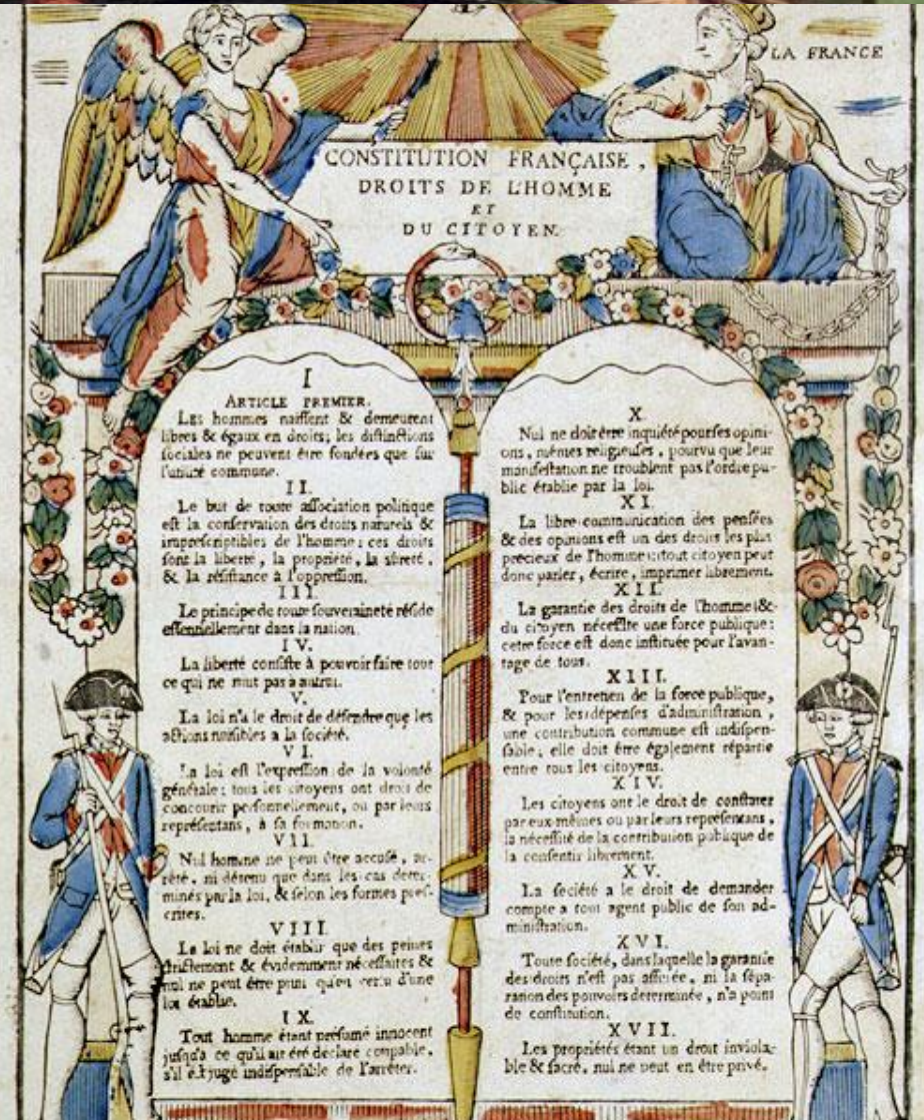 LA FRANCE
CONSTITUTION FRANÇAISE,
DROITS DE L'HOMME
ET
DU CITOYEN.
I
ARTICLE PREMIER.
LES hommes naiſſent & demeurent
libres & égaux en droits; les diſtinctions
ſociales ne peuvent être fondées que ſur
l'utilité commune.
II.
Le but de toute aſſociation politique
eſt la conſervation des droits naturels &
impreſcriptibles de l'homme: ces droits
ſont la liberté, la propriété, la sûreté,
& la réſiſtance à l'oppreſſion.
III.
Le principe de toute ſouveraineté réſide
eſſentiellement dans la nation.
IV.
La liberté conſiſte à pouvoir faire tout
ce qui ne nuit pas à autrui.
V.
La loi n'a le droit de défendre que les
actions nuiſibles a la ſociété.
VI.
La loi eſt l'expreſſion de la volonté
générale; tous les citoyens ont droit de
concourir perſonnellement, ou par leurs
repréſentans, à ſa formation.
VII.
Nul homme ne peut être accuſé, ar-
rêté, ni détenu que dans les cas deter-
minés par la loi, & ſelon les formes preſ-
crites.
VIII.
La loi ne doit établir que des peines
ſtrictement & évidemment néceſſaires &
nul ne peut être puni qu'en vertu d'une
loi établie.
IX.
Tout homme étant préſumé innocent
juſqu'a ce qu'il ait été declaré coupable,
s'il eſt jugé indiſpenſable de l'arrêter.
X.
Nul ne doit être inquiété pour ſes opini-
ons, mêmes religieuſes, pourvu que leur
manifeſtation ne troublent pas l'ordre pu-
blic établie par la loi.
XI.
La libre communication des penſées
& des opinions eſt un des droits les plus
précieux de l'homme: tout citoyen peut
donc parler, écrire, imprimer librement.
XII.
La garantie des droits de l'homme &
du citoyen néceſſite une force publique:
cette force eſt donc inſtituée pour l'avan-
tage de tous.
XIII.
Pour l'entretien de la force publique,
& pour les dépenſes d'adminiſtration,
une contribution commune eſt indiſpen-
ſable; elle doit être également répartie
entre tous les citoyens.
XIV.
Les citoyens ont le droit de conſtater
par eux-mêmes ou par leurs repréſentans,
la néceſſité de la contribution publique de
la conſentir librement.
XV.
La ſociété a le droit de demander
compte a tout agent public de ſon ad-
miniſtration.
XVI.
Toute ſociété, dans laquelle la garantie
des droits n'eſt pas aſſurée, ni la ſépa-
ration des pouvoirs determinée, n'a point
de conſtitution.
XVII.
Les propriétés étant un droit inviola-
ble & ſacré, nul ne peut en être privé.